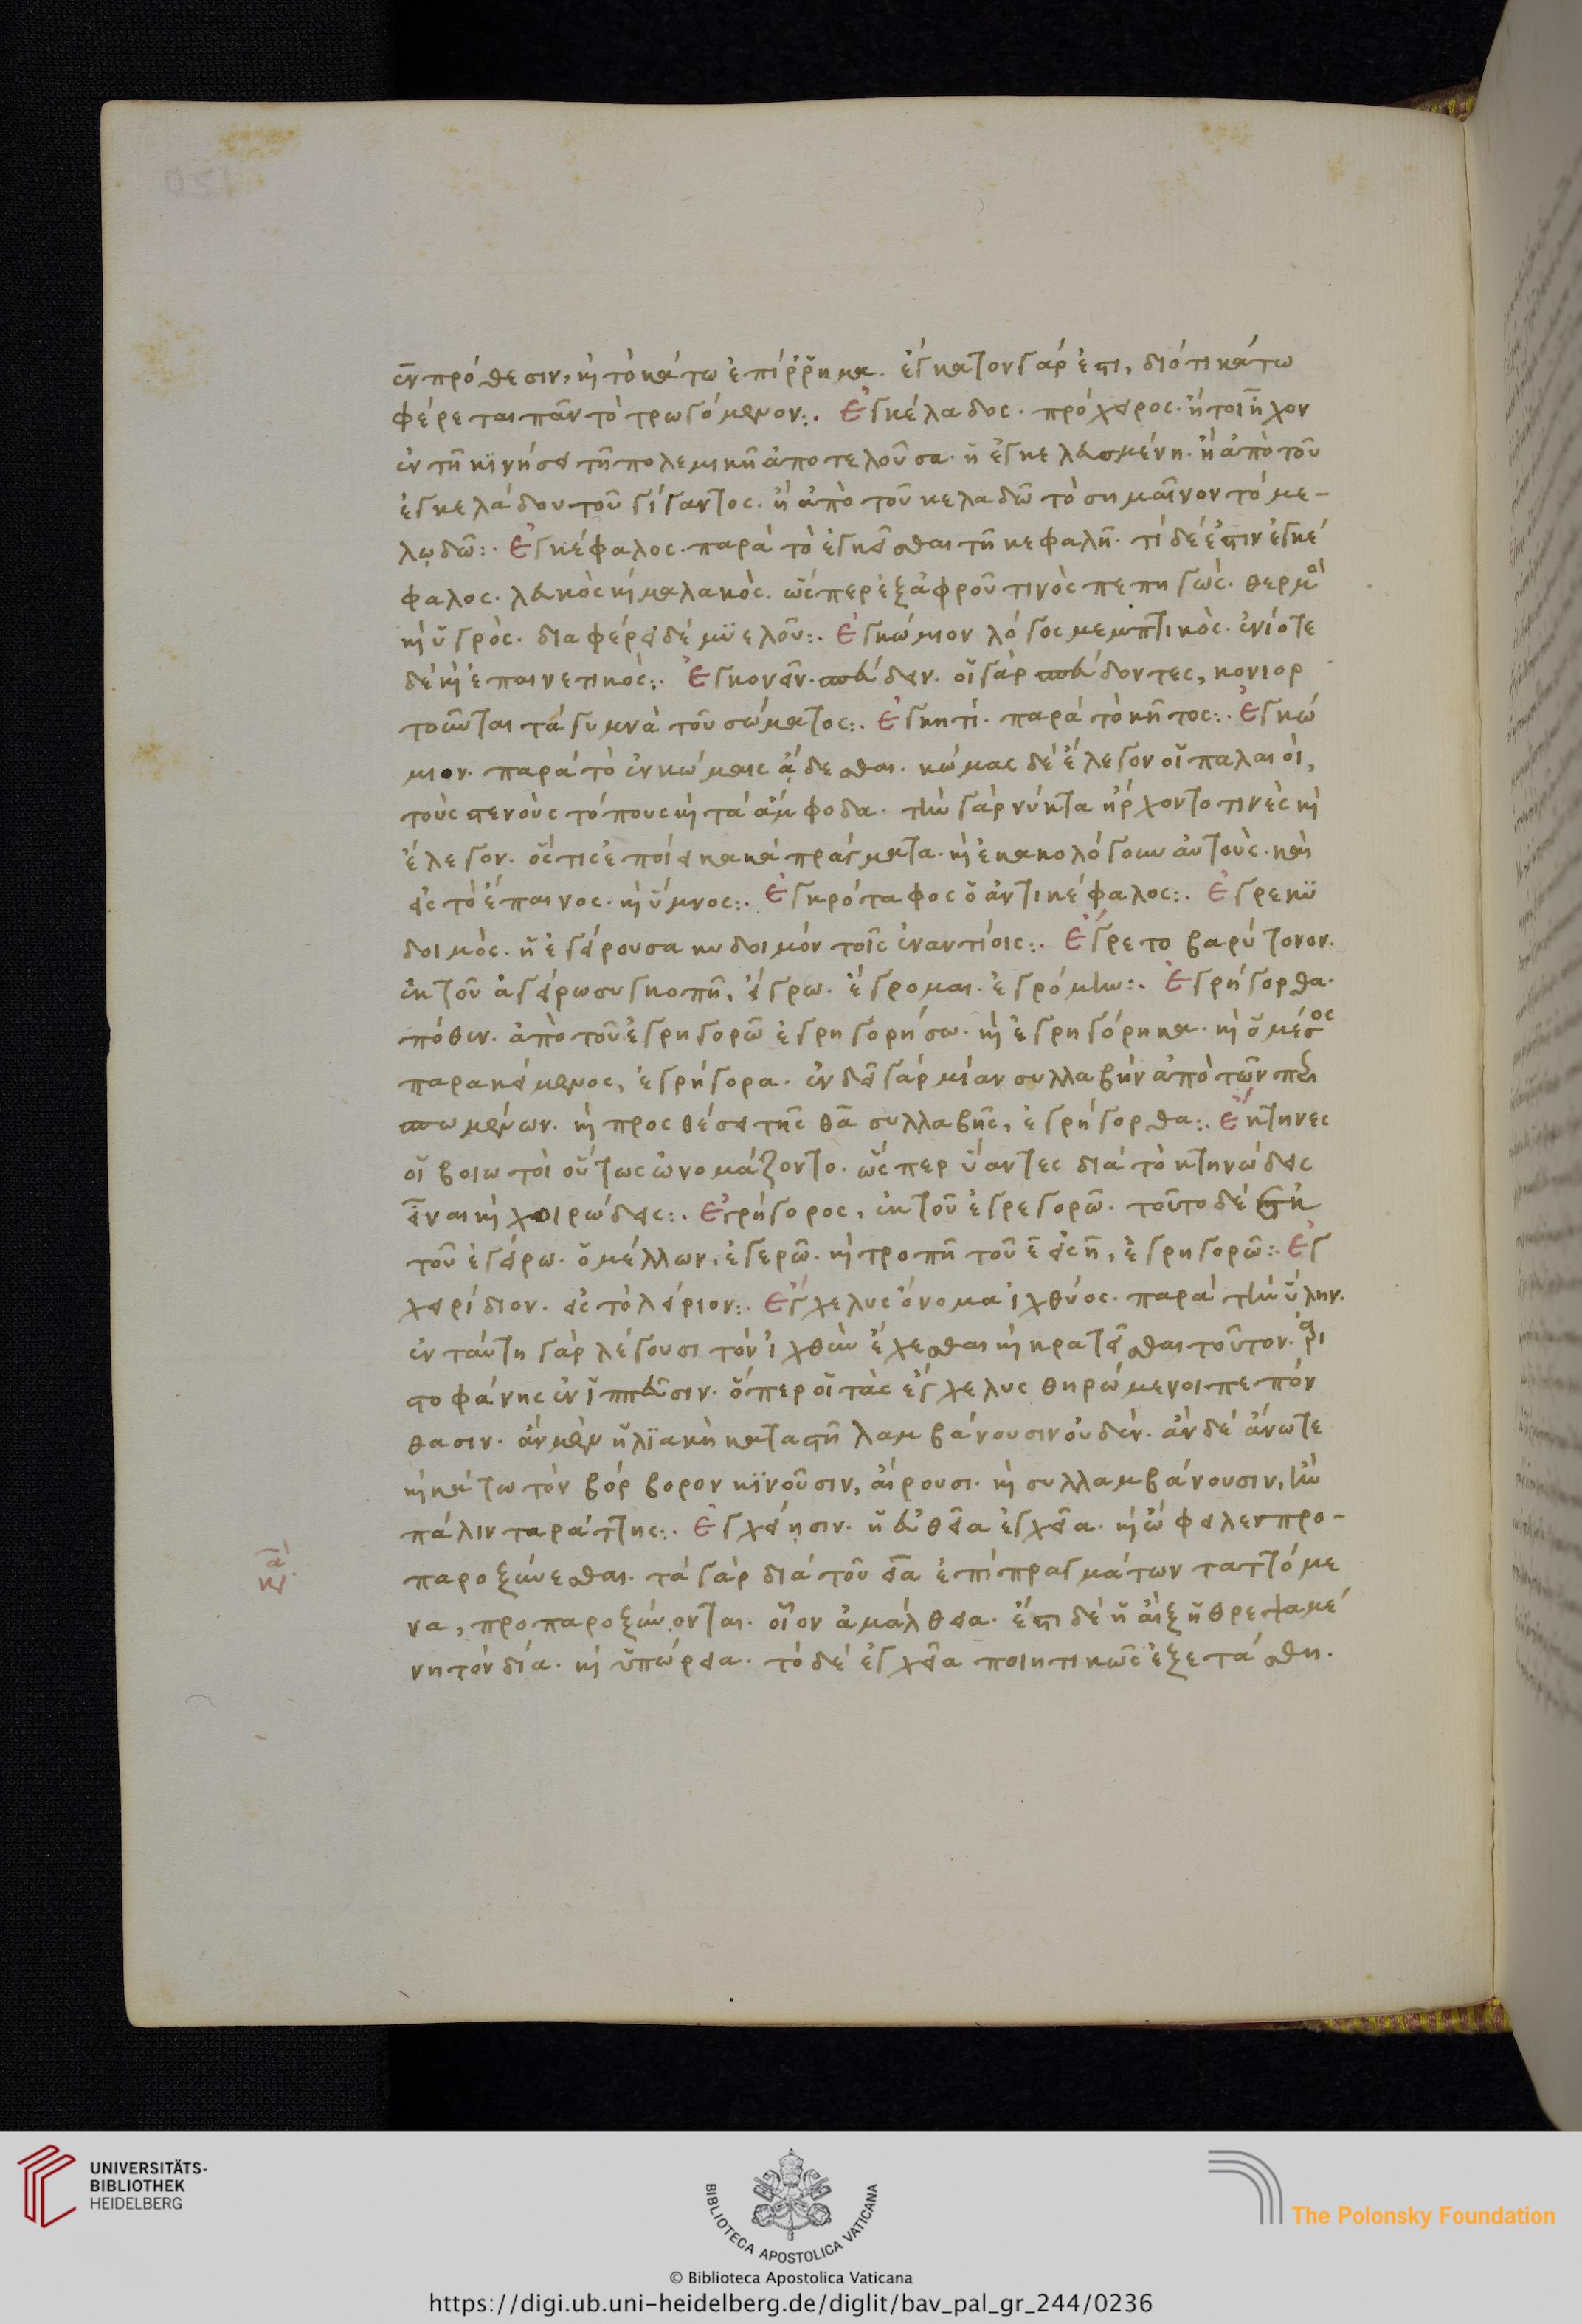 ἐν πρόθεσιν, καὶ τὸ κάτω ἐπίρρημα. ἔγκατον γάρ ἐστι, διότι κάτω
φέρεται πᾶν τὸ τρωγόμενον:. Ἐγκέλαδος. πρόχειρος. ἤτοι ἦχον
ἐν τῆ κϊνήσει τῆ πολεμικῆ ἀποτελοῦσα. ἢ ἐγκελευσμένη. ἢ ἀπὸ τοῦ
ἐγκελάδου τοῦ γίγαντος. ἢ ἀπὸ τοῦ κελαδῶ τὸ σημαῖνον τό με-
λῳδῶ:. Ἐγκέφαλος. παρὰ τὸ ἐγκεῖσθαι τῆ κεφαλῆ. τί δέ ἐστιν ἐγκέ
φαλος. λευκὸς καὶ μαλακὸς. ὥσπερ ἐξ ἀφροῦ τινὸς πεπηγὼς. θερμὸ
καὶ ὑγρὸς. διαφέρει δὲ μϋελοῦ:. Ἐγκώμιον λόγος μεμπτικὸς. ἐνίοτε
δὲ καὶ ἐπαινετικὸς:. Ἐγκονεῖν. σπεύδειν. οἱ γὰρ σπεύδοντες, κονιορ
τοῦνται τὰ γυμνὰ τοῦ σώματος:. Ἐγκητί. παρὰ τὸ κῆτος:. Ἐγκώ
μιον. παρὰ τὸ ἐν κώμαις ᾄδεσθαι. κώμας δὲ ἔλεγον οἱ παλαιοὶ,
τοὺς στενοὺς τόπους καὶ τὰ ἄμφοδα. τὴν γὰρ νύκτα ἤρχοντο τινὲς καὶ
ἔλεγον. ὅστις ἐποίει κακά πράγματα. καὶ ἐκακολόγουν αὐτοὺς. καὶ
εἰς τὸ ἔπαινος. καὶ ὕμνος:. Ἐγκρόταφος ὁ ἀντικέφαλος:. Ἐγρεκϋ
δοιμὸς. ἡ ἐγείρουσα κυδοιμόν τοῖς ἐναντίοις:. Ἔγρετο βαρύτονον.
ἐκ τοῦ ἀγείρω συγκοπῆ, ἔγρω. ἔγρομαι. ἐγρόμην:. Ἐγρήγορθα.
πόθεν. ἀπὸ τοῦ ἐγρηγορῶ ἐγρηγορήσω. καὶ ἐγρηγόρηκα. καὶ ὁ μέσος
παρακείμενος, ἐγρήγορα. ἐνδεῖ γάρ μίαν συλλαβὴν ἀπὸ τῶν περι
σπωμένων. καὶ προσθέσει τῆς θᾶ συλλαβῆς, ἐγρήγορθα:. Ἔκτηνες
οἱ βοιωτοὶ οὕτως ὠνομάζοντο. ὥσπερ ὕαντες διὰ τὸ κτηνώδεις
εἶναι καὶ χοιρώδεις:. Ἐγρήγορος, ἐκ τοῦ ἐγρεγορῶ. τοῦτο δὲ ἐκ
τοῦ ἐγείρω. ὁ μέλλων, ἐγερῶ. καὶ τροπῆ τοῦ ε εἰς η, ἐγρηγορῶ:. Ἐγ
χειρίδιον. εἰς τὸ λείριον:. Ἔγχελυς ὄνομα ἰχθύος. παρὰ τὴν ὕλην.
ἐν ταύτη γὰρ λέγουσι τὸν ἰχθὺν ἔχεσθαι καὶ κρατεῖσθαι τοῦτον. ἀρι
στοφάνης ἐν ἱππεῦσιν. ὅπερ οἱ τὰς ἐγχελυς θηρώμενοι πεπόν
θασιν. ἂν μὲν ἡλϊακὴ καταστῆ λαμβάνουσιν οὐδὲν. ἂν δὲ ἄνωτε
καὶ κάτω τὸν βόρβορον κϊνοῦσιν, αἴρουσι. καὶ συλλαμβάνουσιν, ἢν
πάλιν ταράττης:. Ἐγχείῃσιν. ἡ εὐθεῖα ἐγχεῖα. καὶ ὤφειλεν προ-
παροξύνεσθαι. τὰ γὰρ διὰ τοῦ εια ἐπὶ πραγμάτων ταττόμε
να, προπαροξύνονται. οἷον ἀμάλθεια. ἔστι δὲ ἡ αἴξ ἡ θρεψαμέ
νη τὸν δία. καὶ ὑπώρεια. τὸ δὲ ἐγχεῖα ποιητικῶς ἐξετάθη.
UNIVERSITÄTS-
BIBLIOTHEK
HEIDELBERG
BIBLIOTECA APOSTOLICA VATICANA
The Polonsky Foundation
© Biblioteca Apostolica Vaticana
https://digi.ub.uni-heidelberg.de/diglit/bav_pal_gr_244/0236